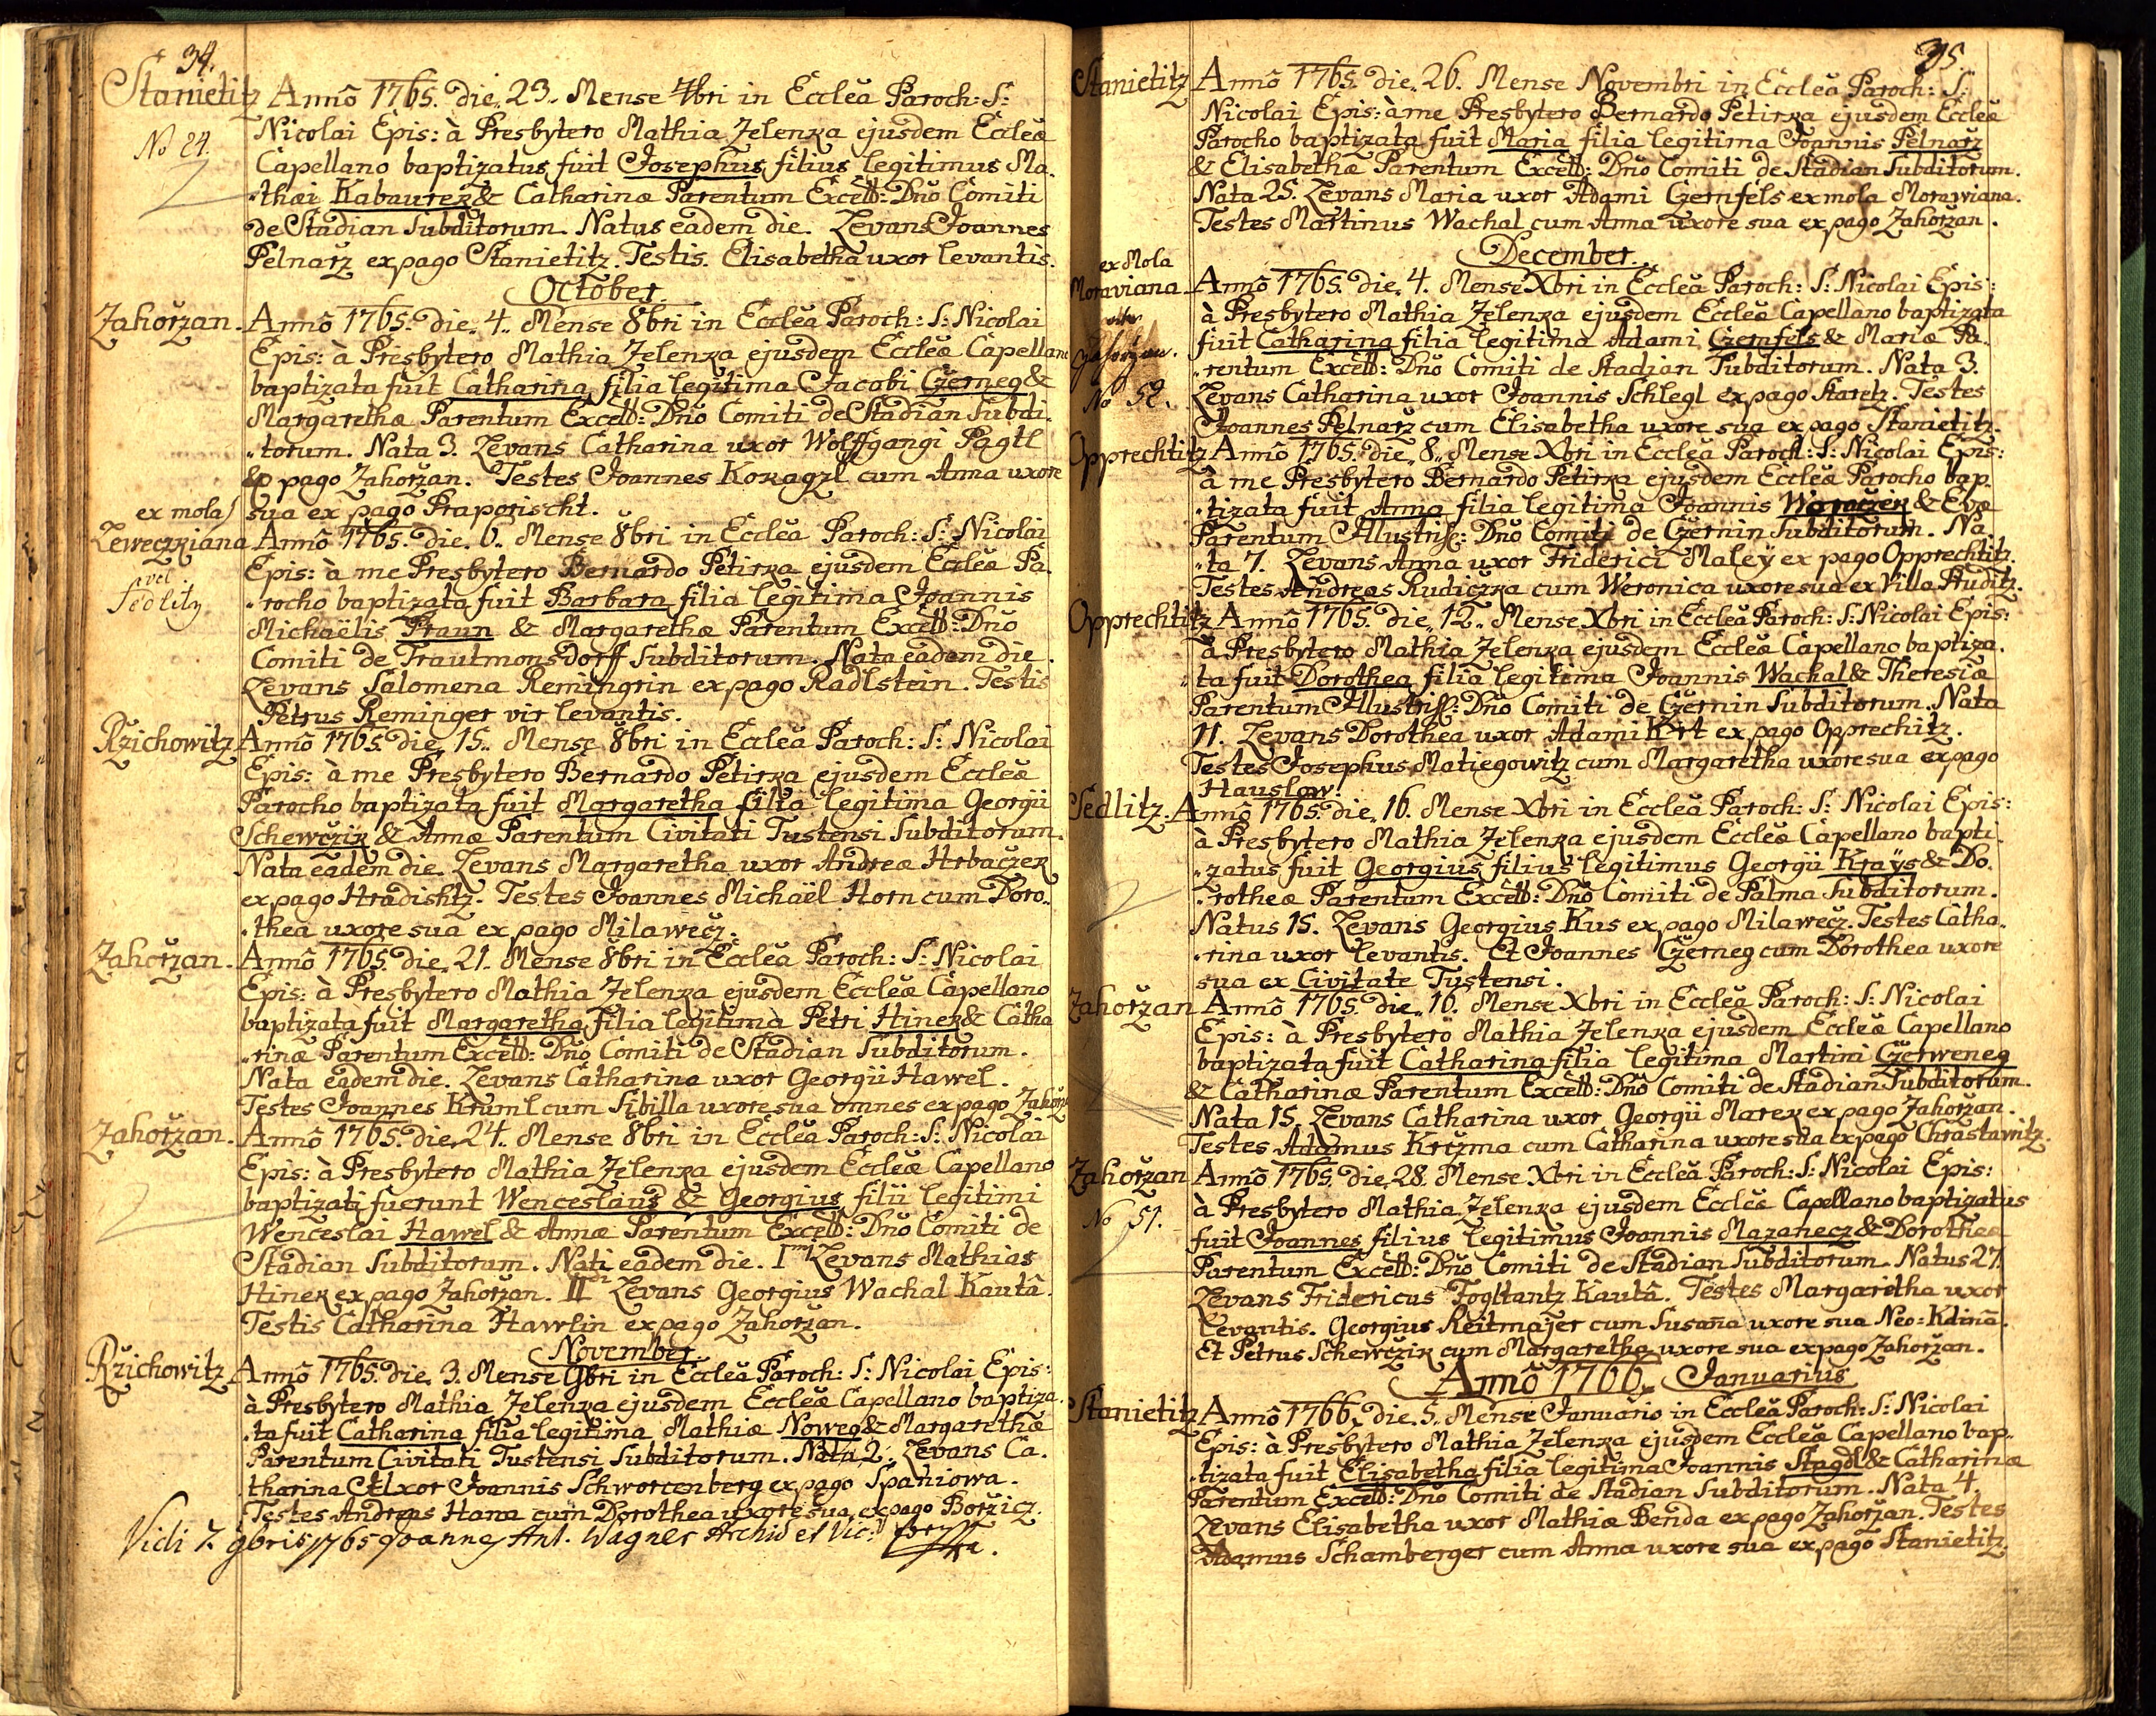 34.
Stanietitz Annô 1765. die. 23. Mense 7bri in Ecclea Paroch: S:
Nicolai Epis: à Presbytero Mathia Zelenka ejusdem Ecclea
No 24.
Capellano baptizatus fuit Josephus filius legitimus Ma.
thæi Kabaurek & Catharinæ Parentum Excell: Dño Comiti
de Stadian Subditorum. Natus eadem die. Levans Joannes
Pelnarz ex pago Stanietitz. Testis. Elisabetha uxor levantis.
October.
Zahoržan. Annô 1765. die. 4. Mense 8bri in Ecclea Paroch: S: Nicolai
Epis: à Presbytero Mathia Zelenka ejusdem Ecclea Capellano
baptizata fuit Catharina filia legitima Jacobi Czerneg &
Margarethæ Parentum Excell: Dño Comiti de Stadian Subdi.
torum. Nata 3. Levans Catharina uxor Wolffgangi Pagtl
ex pago Zahoržan. Testes Joannes Kokagzl cum Anna uxore
sua ex pago Praporischt.
ex mola
Leweczkiana Annô 1765. die. 6. Mense 8bri in Ecclea Paroch: S: Nicolai
Epis: à me Presbytero Bernardo Petirka ejusdem Ecclea Pa.
vel
Sedlitz
rocho baptizata fuit Barbara filia legitima Joannis
Michaëlis Praun & Margarethæ Parentum Excell: Dño
Comiti de Trautmonsdorff Subditorum. Nata eadem die.
Levans Salomena Remingrin ex pago Radlstein. Testis
Petrus Reminger vir levantis.
Ržichowitz Annô 1765. die. 15. Mense 8bri in Ecclea Paroch: S: Nicolai
Epis: à me Presbytero Bernardo Petirka ejusdem Ecclea
Parocho baptizata fuit Margaretha filia legitima Georgii
Schewczik & Annæ Parentum Civitati Tustensi Subditorum.
Nata eadem die. Levans Margaretha uxor Andreæ Hrbaczek
ex pago Hradishtz. Testes Joannes Michaël Horn cum Doro.
thea uxore sua ex pago Milawecz.
Zahoržan. Annô 1765. die. 21. Mense 8bri in Ecclea Paroch: S: Nicolai
Epis: à Presbytero Mathia Zelenka ejusdem Ecclea Capellano
baptizata fuit Margaretha filia legitima Petri Hinek & Catha
rinæ Parentum Excell: Dño Comiti de Stadian Subditorum.
Nata eadem die. Levans Catharina uxor Georgii Hawel.
Testes Joannes Kruml cum Sibilla uxore sua omnes ex pago Zahorž
Zahoržan. Annô 1765. die. 24. Mense 8bri in Ecclea Paroch: S: Nicolai
Epis: à Presbytero Mathia Zelenka ejusdem Ecclea Capellano
baptizati fuerunt Wenceslaus & Georgius filii legitimi
Wenceslai Hawel & Annæ Parentum Excell: Dño Comiti de
Stadian Subditorum. Nati eadem die. I Levans Mathias
Hinek ex pago Zahoržan. II Levans Georgius Wachal Kautâ.
Testis Catharina Hawlin ex pago Zahoržan.
November.
Ržichowitz Annô 1765. die. 3. Mense 9bri in Ecclea Paroch: S: Nicolai Epis:
à Presbytero Mathia Zelenka ejusdem Ecclea Capellano baptiza.
ta fuit Catharina filia legitima Mathiæ Noweg & Margarethæ
Parentum Civitati Tustensi Subditorum. Nata 2. Levans Ca.
tharina Uxor Joannis Schworcenberg ex pago Spaniowa.
Testes Andreas Hana cum Dorothea uxore sua ex pago Boržicz.
Vidi 7. 9bris 1765 Joannes Ant. Wagner Archid et Vic:
35.
Stanietitz Annô 1765. die. 26. Mense Novembri in Ecclea Paroch: S:
Nicolai Epis: à me Presbytero Bernardo Petirka ejusdem Ecclea
Parocho baptizata fuit Maria filia legitima Joannis Pelnarz
& Elisabethæ Parentum Excell: Dño Comiti de Stadian Subditorum.
Nata 25. Levans Maria uxor Adami Czernfels ex mola Morawiana.
Testes Martinus Wachal cum Anna uxore sua ex pago Zahoržan.
December.
ex Mola
Moraviana Annô 1765. die. 4. Mense Xbri in Ecclea Paroch: S: Nicolai Epis:
à Presbytero Mathia Zelenka ejusdem Ecclea Capellano baptizata
fuit Catharina filia legitima Adami Czernfels & Mariæ Pa.
rentum Excell: Dño Comiti de Stadian Subditorum. Nata 3.
No 52.
Levans Catharina uxor Joannis Schlegl ex pago Staretz. Testes
Joannes Pelnarz cum Elisabetha uxore sua ex pago Stanietitz.
Opprechtitz Annô 1765. die. 8. Mense Xbri in Ecclea Paroch: S: Nicolai Epis:
à me Presbytero Bernardo Petirka ejusdem Ecclea Parocho bap.
tizata fuit Anna filia legitima Joannis Woraczek & Evæ
Parentum Illustriss: Dño Comiti de Czernin Subditorum. Na
ta 7. Levans Anna uxor Friderici Maleÿ ex pago Opprechtitz.
Testes Andreas Rudiczka cum Weronica uxore sua ex Villa Pruditz.
Opprechtitz Annô 1765. die. 12. Mense Xbri in Ecclea Paroch: S: Nicolai Epis:
à Presbytero Mathia Zelenka ejusdem Ecclea Capellano baptiza.
ta fuit Dorothea filia legitima Joannis Wachal & Theresiæ
Parentum Illustriss: Dño Comiti de Czernin Subditorum. Nata
11. Levans Dorothea uxor Adami Krt ex pago Opprechitz.
Testes Josephus Matiegowitz cum Margaretha uxore sua ex pago
Hauslow.
Sedlitz. Annô 1765. die. 16. Mense Xbri in Ecclea Paroch: S: Nicolai Epis:
à Presbytero Mathia Zelenka ejusdem Ecclea Capellano bapti.
zatus fuit Georgius filius legitimus Georgii Kraÿs & Do.
rotheæ Parentum Excell: Dño Comiti de Palma Subditorum.
Natus 15. Levans Georgius Kus ex pago Milawecz. Testes Catha.
rina uxor levantis. Et Joannes Czerneg cum Dorothea uxore
sua ex Civitate Tustensi.
Zahoržan Annô 1765. die. 16. Mense Xbri in Ecclea Paroch: S: Nicolai
Epis: à Presbytero Mathia Zelenka ejusdem Ecclea Capellano
baptizata fuit Catharina filia legitima Martini Czerweneg
& Catharinæ Parentum Excell: Dño Comiti de Stadian Subditorum.
Nata 15. Levans Catharina uxor Georgii Marek ex pago Zahoržan.
Testes Adamus Krczma cum Catharina uxore sua ex pago Chrastawitz.
Zahoržan Annô 1765. die. 28. Mense Xbri in Ecclea Paroch: S: Nicolai Epis:
à Presbytero Mathia Zelenka ejusdem Ecclea Capellano baptizatus
No 51.
fuit Joannes filius legitimus Joannis Mazanecz & Dorotheæ
Parentum Excell: Dño Comiti de Stadian Subditorum. Natus 27.
Levans Fridericus Fogltantz Kautâ. Testes Margaretha uxor
levantis. Georgius Reitmajer cum Susaña uxore sua Neo=Kdinâ.
Et Petrus Schewczik cum Margaretha uxore sua ex pago Zahoržan.
Annô 1766. Januarius
Stanietitz Annô 1766. die. 5. Mense Januario in Ecclea Paroch: S: Nicolai
Epis: à Presbytero Mathia Zelenka ejusdem Ecclea Capellano bap.
tizata fuit Elisabetha filia legitima Joannis Stagdl & Catharinæ
Parentum Excell: Dño Comiti de Stadian Subditorum. Nata 4.
Levans Elisabetha uxor Mathiæ Benda ex pago Zahoržan. Testes
Adamus Schamberger cum Anna uxore sua ex pago Stanietitz.